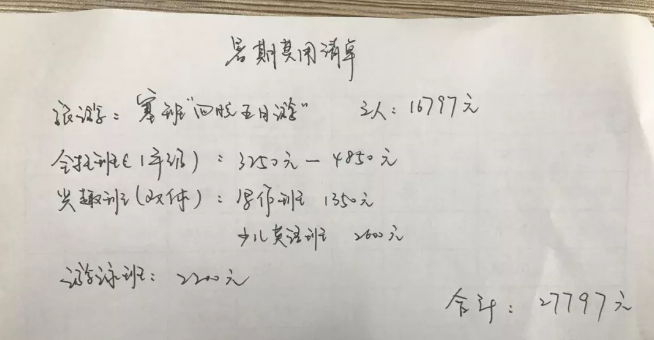 暑期费用清单
旅游：塞班“四晚五日游” 三人：16797元
全托班(1年级)：3250元—4850元
兴趣班(政体)：写作班 1350元
少儿英语班 2600元
游泳班：2200元
合计：27797元